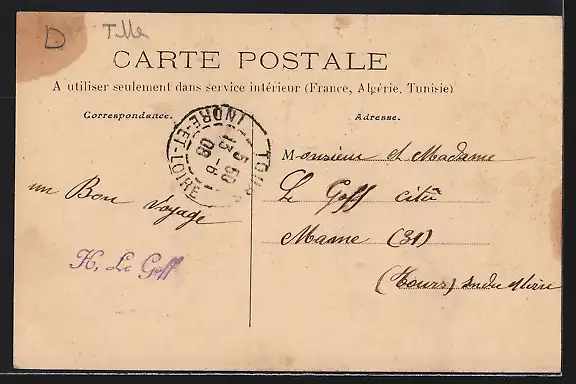 D
CARTE POSTALE
A utiliser seulement dans service intérieur (France, Algérie, Tunisie)
Correspondance.
Adresse.
TOURS
INDRE-ET-LOIRE
5 50
13 - 6
08
un Bon Voyage
H. Le Goff
Monsieur et Madame
Le Goff cité
Mame (31)
(Tours) Indre et Loire